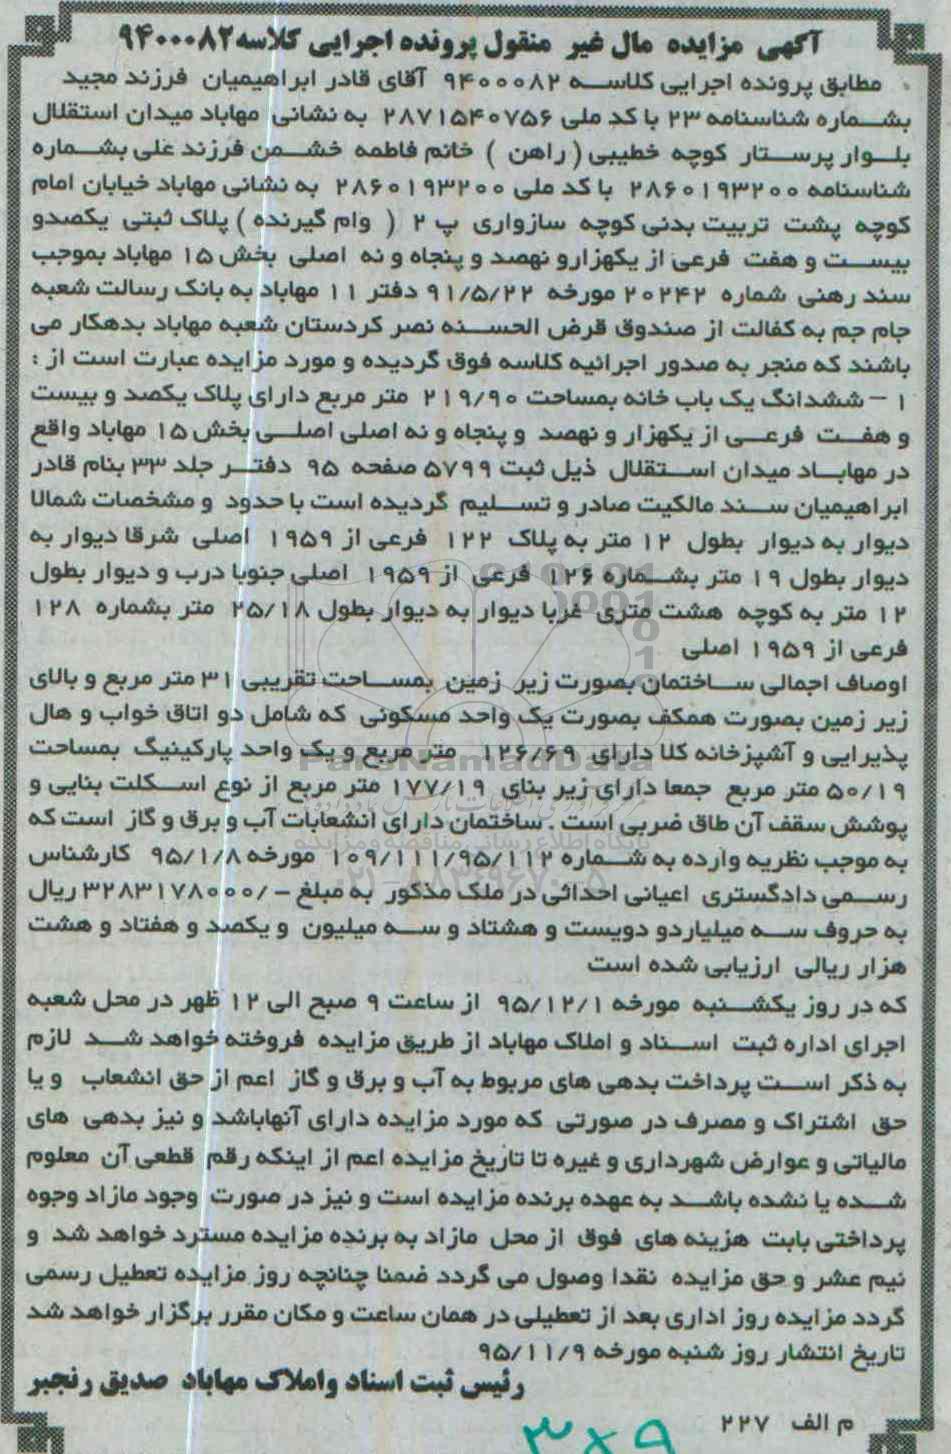 آگهی مزایده مال غیر منقول پرونده اجرایی کلاسه ۹۴۰۰۰۸۲
مطابق پرونده اجرایی کلاسه ۹۴۰۰۰۸۲ آقای قادر ابراهیمیان فرزند مجید
بشماره شناسنامه ۲۳ با کد ملی ۲۸۷۱۵۴۰۷۵۶ به نشانی مهاباد میدان استقلال
بلوار پرستار کوچه خطیبی ( راهن ) خانم فاطمه خشمن فرزند علی بشماره
شناسنامه ۲۸۶۰۱۹۳۲۰۰ با کد ملی ۲۸۶۰۱۹۳۲۰۰ به نشانی مهاباد خیابان امام
کوچه پشت تربیت بدنی کوچه سازواری پ ۲ ( وام گیرنده ) پلاک ثبتی یکصدو
بیست و هفت فرعی از یکهزارو نهصد و پنجاه و نه اصلی بخش ۱۵ مهاباد بموجب
سند رهنی شماره ۲۰۲۴۲ مورخه ۹۱/۵/۲۲ دفتر ۱۱ مهاباد به بانک رسالت شعبه
جام جم به کفالت از صندوق قرض الحسنه نصر کردستان شعبه مهاباد بدهکار می
باشند که منجر به صدور اجرائیه کلاسه فوق گردیده و مورد مزایده عبارت است از :
۱ – ششدانگ یک باب خانه بمساحت ۲۱۹/۹۰ متر مربع دارای پلاک یکصد و بیست
و هفت فرعی از یکهزار و نهصد و پنجاه و نه اصلی اصلی بخش ۱۵ مهاباد واقع
در مهاباد میدان استقلال ذیل ثبت ۵۷۹۹ صفحه ۹۵ دفتر جلد ۳۳ بنام قادر
ابراهیمیان سند مالکیت صادر و تسلیم گردیده است با حدود و مشخصات شمالا
دیوار به دیوار بطول ۱۲ متر به پلاک ۱۲۲ فرعی از ۱۹۵۹ اصلی شرقا دیوار به
دیوار بطول ۱۹ متر بشماره ۱۲۶ فرعی از ۱۹۵۹ اصلی جنوبا درب و دیوار بطول
۱۲ متر به کوچه هشت متری غربا دیوار به دیوار بطول ۲۵/۱۸ متر بشماره ۱۲۸
فرعی از ۱۹۵۹ اصلی
اوصاف اجمالی ساختمان بصورت زیر زمین بمساحت تقریبی ۳۱ متر مربع و بالای
زیر زمین بصورت همکف بصورت یک واحد مسکونی که شامل دو اتاق خواب و هال
پذیرایی و آشپزخانه کلا دارای ۱۲۶/۶۹ متر مربع و یک واحد پارکینیگ بمساحت
۵۰/۱۹ متر مربع جمعا دارای زیر بنای ۱۷۷/۱۹ متر مربع از نوع اسکلت بنایی و
پوشش سقف آن طاق ضربی است . ساختمان دارای انشعابات آب و برق و گاز است که
به موجب نظریه وارده به شماره ۱۰۹/۱۱۱/۹۵/۱۱۲ مورخه ۹۵/۱/۸ کارشناس
رسمی دادگستری اعیانی احداثی در ملک مذکور به مبلغ -/۳۲۸۳۱۷۸۰۰۰ ریال
به حروف سه میلیاردو دویست و هشتاد و سه میلیون و یکصد و هفتاد و هشت
هزار ریالی ارزیابی شده است
که در روز یکشنبه مورخه ۹۵/۱۲/۱ از ساعت ۹ صبح الی ۱۲ ظهر در محل شعبه
اجرای اداره ثبت اسناد و املاک مهاباد از طریق مزایده فروخته خواهد شد لازم
به ذکر است پرداخت بدهی های مربوط به آب و برق و گاز اعم از حق انشعاب و یا
حق اشتراک و مصرف در صورتی که مورد مزایده دارای آنهاباشد و نیز بدهی های
مالیاتی و عوارض شهرداری و غیره تا تاریخ مزایده اعم از اینکه رقم قطعی آن معلوم
شده یا نشده باشد به عهده برنده مزایده است و نیز در صورت وجود مازاد وجوه
پرداختی بابت هزینه های فوق از محل مازاد به برنده مزایده مسترد خواهد شد و
نیم عشر و حق مزایده نقدا وصول می گردد ضمنا چنانچه روز مزایده تعطیل رسمی
گردد مزایده روز اداری بعد از تعطیلی در همان ساعت و مکان مقرر برگزار خواهد شد
تاریخ انتشار روز شنبه مورخه ۹۵/۱۱/۹
رئیس ثبت اسناد واملاک مهاباد صدیق رنجبر
م الف ۲۲۷
ParsNamadData
پایگاه اطلاع رسانی مناقصه و مزایده